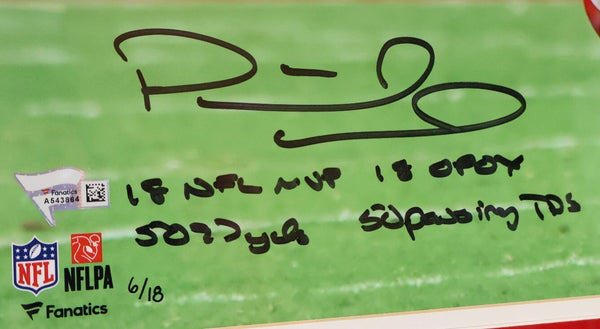 18 NFL MVP 18 OPOY
5097 yds 50 passing TDs
Fanatics
A543864
NFL
NFLPA
6/18
Fanatics